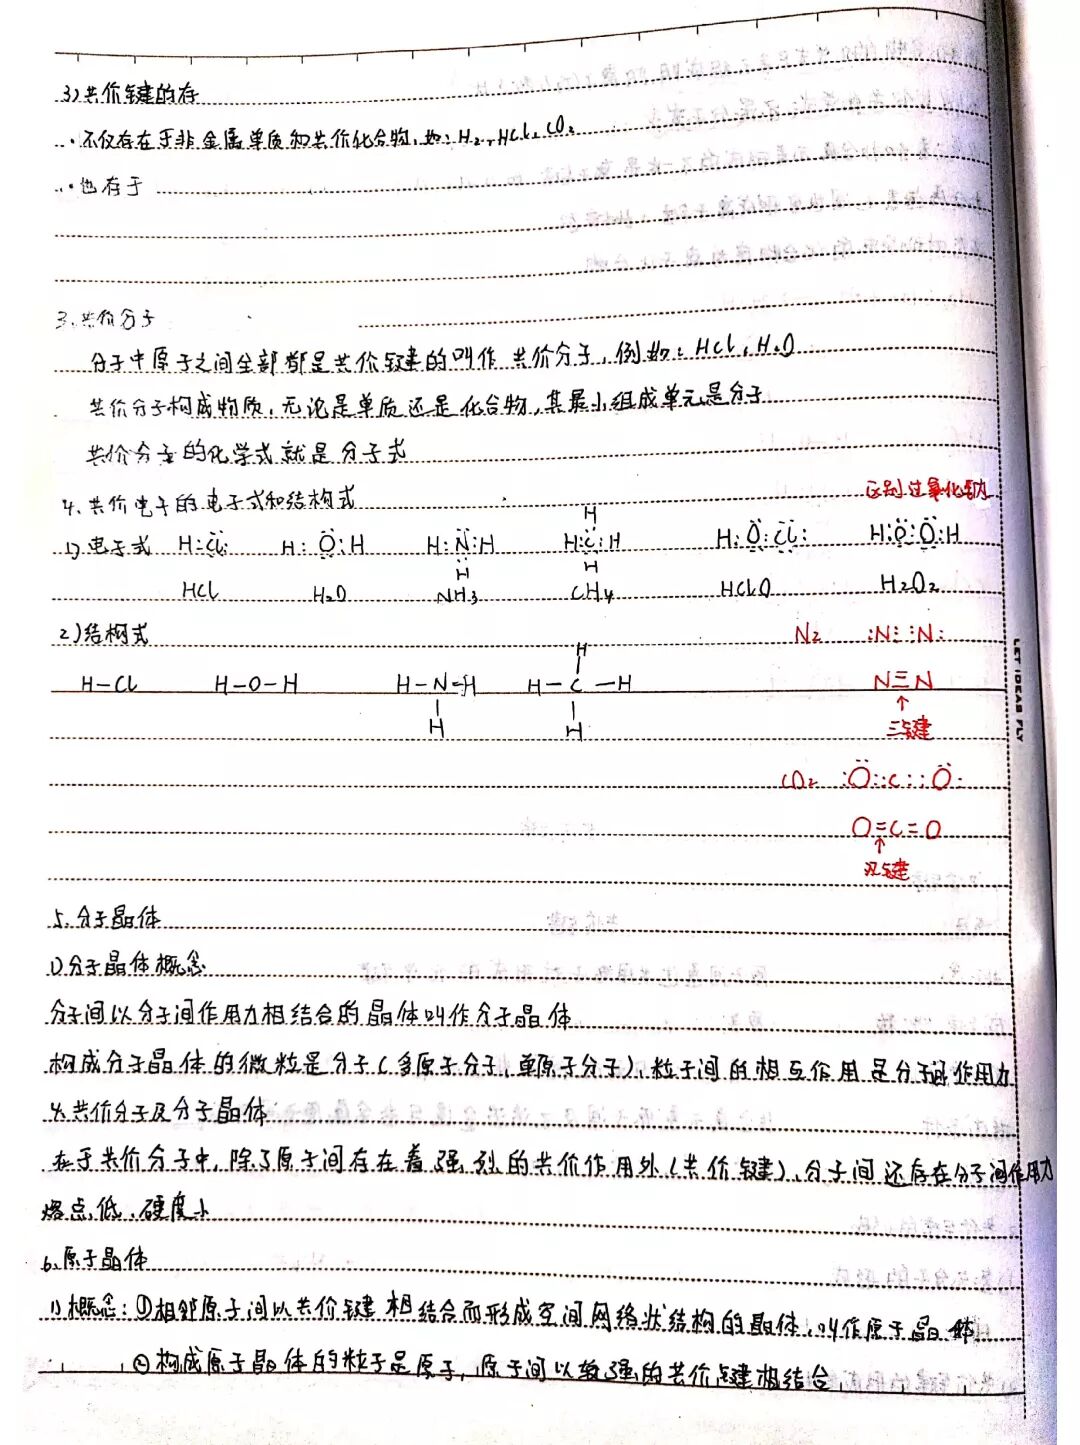 3)共价键的存
·不仅存在于非金属单质和共价化合物,如:H₂、HCl、CO₂
·也存于
3、共价分子
分子中原子之间全部都是共价键的叫作 共价分子,例如:HCl、H₂O
共价分子构成物质,无论是单质还是化合物,其最小组成单元是分子
共价分子的化学式就是分子式
4、共价电子的电子式和结构式
区别过氧化钠
1)电子式 H:Cl: H:O:H H:N:H H:C:H H:O:Cl: H:O:O:H
H H H
HCl H₂O NH₃ CH₄ HClO H₂O₂
2)结构式
N₂ :N⋮⋮N:
H-Cl H-O-H H-N-H H-C-H
H H H
N≡N
↑
三键
CO₂ :O::C::O:
O=C=O
↑
双键
5、分子晶体
1)分子晶体概念
分子间以分子间作用力相结合的晶体叫作分子晶体
构成分子晶体的微粒是分子(多原子分子,单原子分子),粒子间的相互作用是分子间作用力
共价分子及分子晶体
在于共价分子中,除了原子间存在着强烈的共价作用外(共价键),分子间还存在分子间作用力
熔点低、硬度小
6、原子晶体
1)概念:①相邻原子间以共价键相结合而形成空间网络状结构的晶体,叫作原子晶体
②构成原子晶体的粒子是原子,原子间以较强的共价键相结合
LET IDEAS FLY